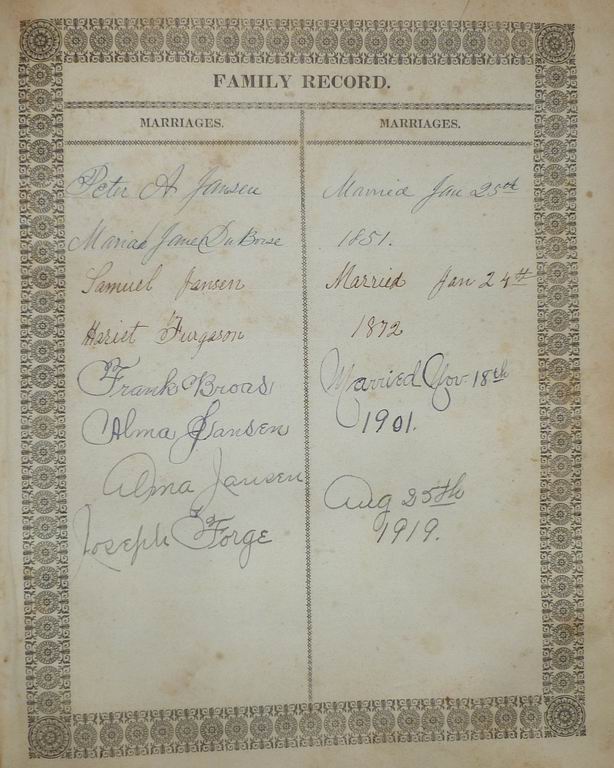 FAMILY RECORD.
MARRIAGES.
Peter A Jansen
Mariah Jane DuBoise
Samuel Jansen
Hariet Furgason
Frank Broas
Alma Jansen
Alma Jansen
Joseph Forge
MARRIAGES.
Married Jan 25th
1851.
Married Jan 24th
1872
Married Nov 18th
1901.
Aug 25th
1919.